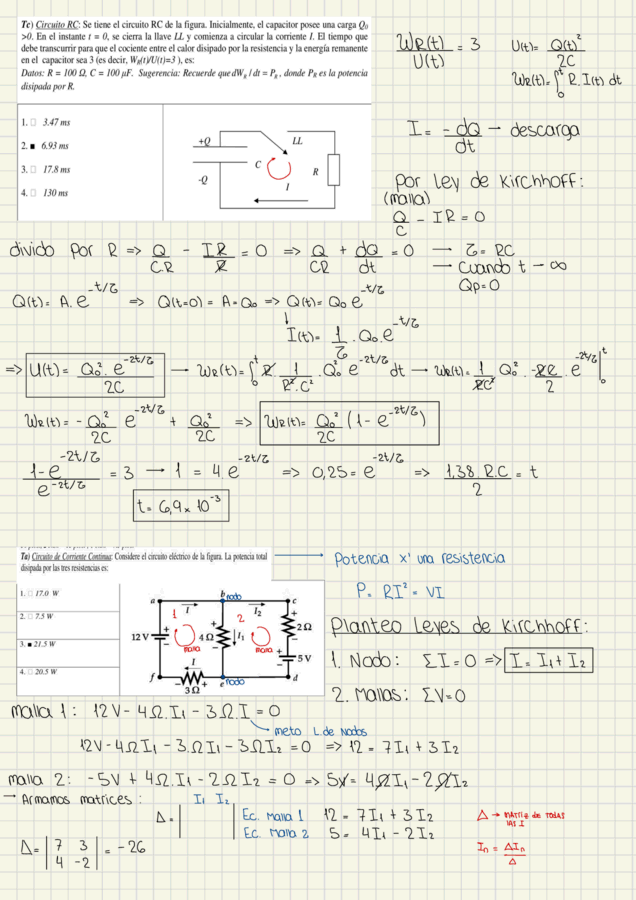 Tc) Circuito RC: Se tiene el circuito RC de la figura. Inicialmente, el capacitor posee una carga Q₀
>0. En el instante t = 0, se cierra la llave LL y comienza a circular la corriente I. El tiempo que
debe transcurrir para que el cociente entre el calor disipado por la resistencia y la energía remanente
en el capacitor sea 3 (es decir, W_R(t)/U(t)=3 ), es:
Datos: R = 100 Ω, C = 100 μF. Sugerencia: Recuerde que dW_R / dt = P_R , donde P_R es la potencia
disipada por R.
W_R(t)/U(t) = 3
U(t) = Q(t)²/2C
W_R(t) = ∫₀ᵗ R.I(t) dt
1. □ 3.47 ms
2. ■ 6.93 ms
3. □ 17.8 ms
4. □ 130 ms
+Q LL
C R
-Q I
I = -dQ/dt → descarga
por ley de Kirchhoff:
(malla)
Q/C - IR = 0
divido por R => Q/C.R - IR/R = 0 => Q/CR + dQ/dt = 0 → τ = RC
→ cuando t → ∞
Qp=0
Q(t) = A.e^(-t/τ) => Q(t=0) = A = Q₀ => Q(t) = Q₀ e^(-t/τ)
↓
I(t) = 1/τ . Q₀.e^(-t/τ)
=> U(t) = Q₀².e^(-2t/τ)/2C → W_R(t) = ∫₀ᵗ R. 1/R².C² .Q₀² e^(-2t/τ) dt → W_R(t) = 1/RC² Q₀² . -RC/2 . e^(-2t/τ) |₀ᵗ
W_R(t) = -Q₀²/2C e^(-2t/τ) + Q₀²/2C => W_R(t) = Q₀²/2C (1 - e^(-2t/τ))
1-e^(-2t/τ)/e^(-2t/τ) = 3 → 1 = 4 e^(-2t/τ) => 0,25 = e^(-2t/τ) => 1,38.R.C/2 = t
t = 6,9 x 10⁻³
Ta) Circuito de Corriente Continua: Considere el circuito eléctrico de la figura. La potencia total
disipada por las tres resistencias es:
→ Potencia x' una resistencia
P = RI² = VI
1. □ 17.0 W
2. □ 7.5 W
3. ■ 21.5 W
4. □ 20.5 W
a b nodo c
1 I 2 I₂
2 Ω
12 V 4 Ω I₁
malla malla
5 V
I
f 3 Ω e nodo d
Planteo Leyes de Kirchhoff:
1. Nodo: ΣI = 0 => I = I₁ + I₂
2. Mallas: ΣV=0
malla 1: 12V - 4Ω.I₁ - 3Ω.I = 0
meto L. de Nodos
12V - 4ΩI₁ - 3.ΩI₁ - 3ΩI₂ = 0 => 12 = 7I₁ + 3I₂
malla 2: -5V + 4Ω.I₁ - 2ΩI₂ = 0 => 5V = 4ΩI₁ - 2ΩI₂
→ Armamos matrices: I₁ I₂
Δ = | | Ec. Malla 1 12 = 7I₁ + 3I₂
Ec. Malla 2 5 = 4I₁ - 2I₂
Δ → MATRIZ de TODAS
LAS I
Iₙ = ΔIₙ/Δ
Δ = |7 3| = -26
|4 -2|